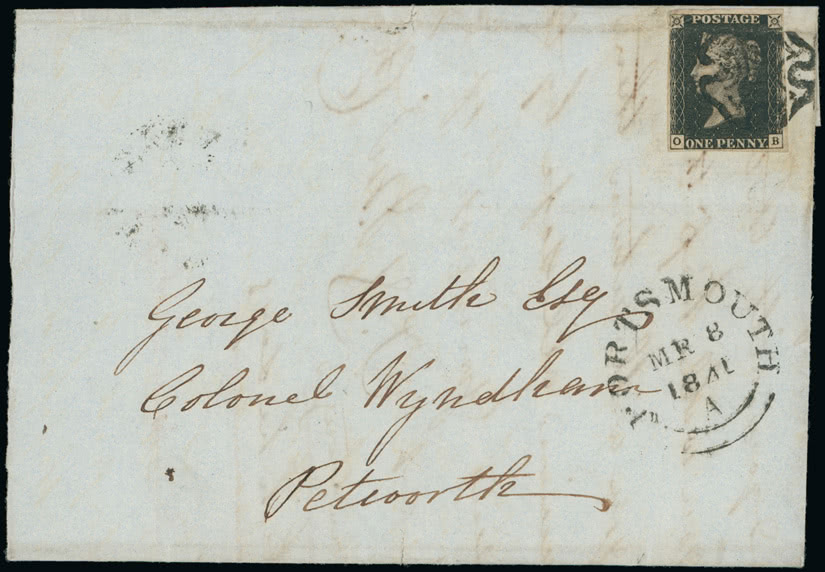 POSTAGE
O ONE PENNY B
George Smith Esq
Colonel Wyndham
Petworth
PORTSMOUTH
MR 8
1841
A